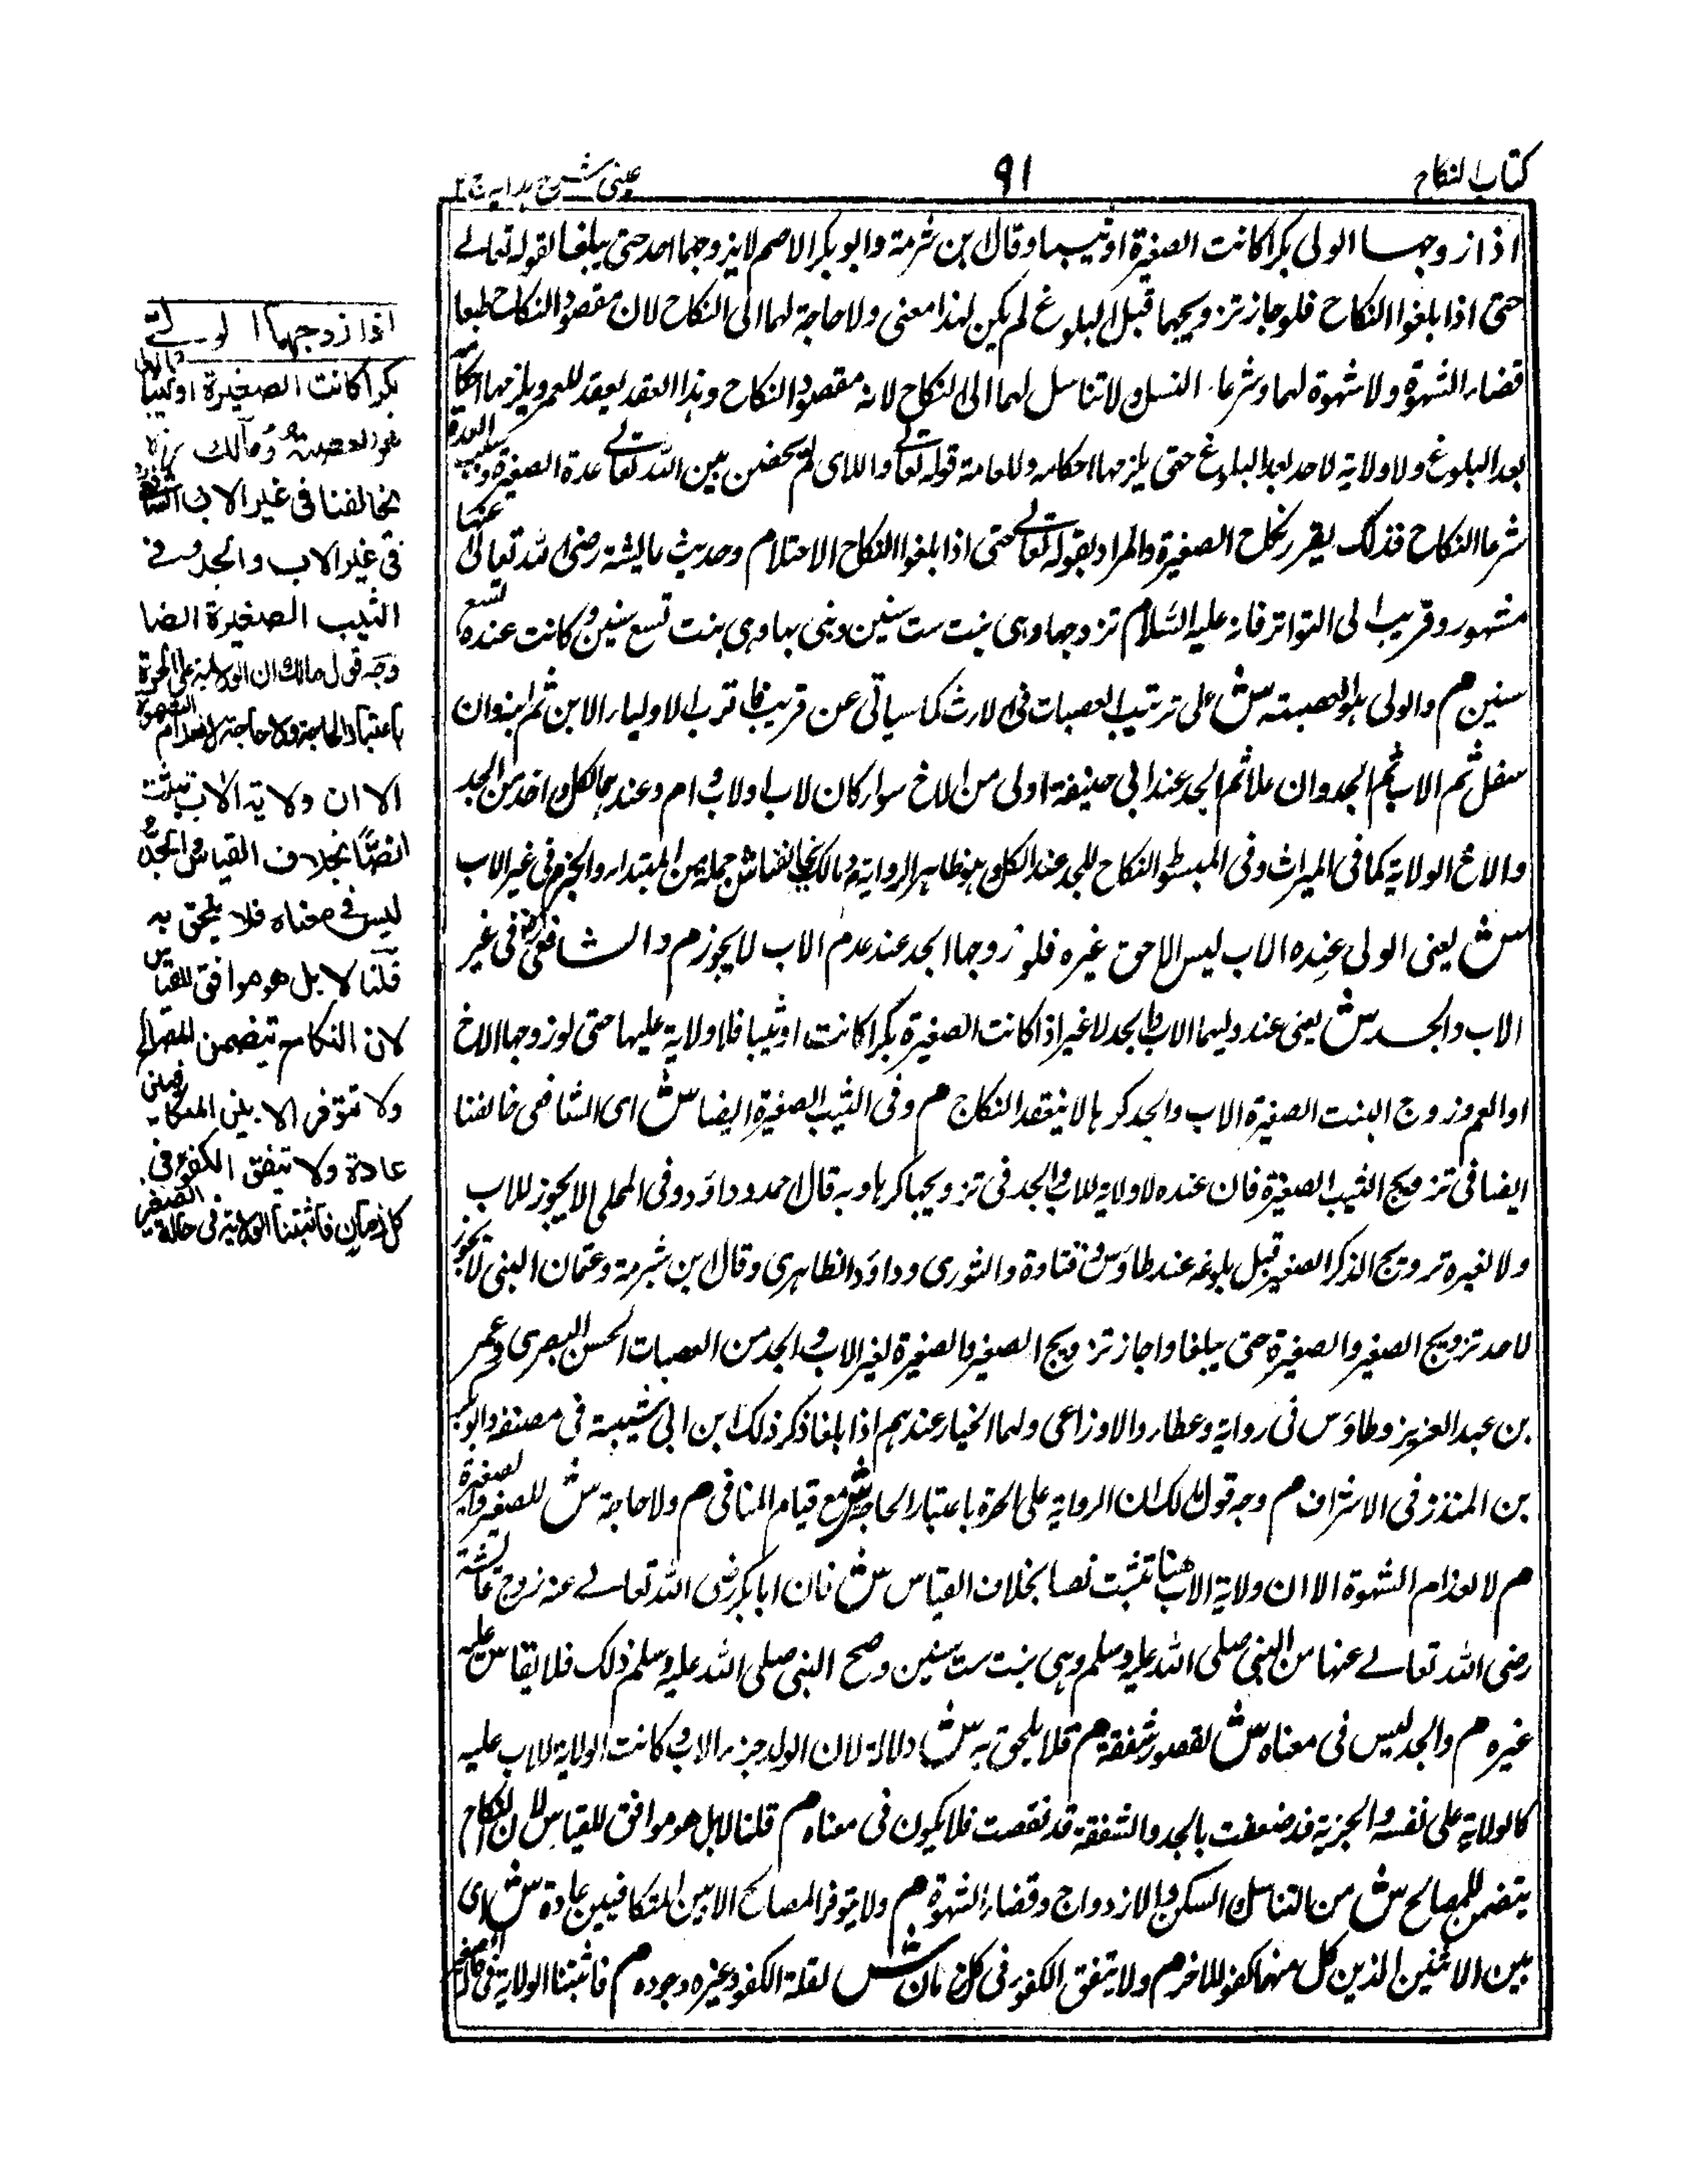 كتاب النكاح
٩١
عينى شرح هدايه ج ٢
اذا زوجها الولى بكرا كانت الصغيرة او ثيبا وقال ابن شبرمة وابو بكر الاصم لا يزوجهما احد حتى يبلغا لقوله تعالے
حتى اذا بلغوا النكاح فلو جاز تزويجهما قبل البلوغ لم يكن لهذا معنى ولا حاجة لهما الى النكاح لان مقصود النكاح طبعا
قضاء الشهوة ولا شهوة لهما وشرعا النسل ولا تناسل لهما الى النكاح لانه مقصود النكاح وهذا العقد يعقد للعمر ويلزمهما احكامه
بعد البلوغ ولا ولاية لاحد بعد البلوغ حتى يلزمهما احكامه وللعامة قوله تعالے واللاى لم يحضن بين الله تعالے عدة الصغيرة وسبب العدة
شرعا النكاح فذلك يقرر نكاح الصغيرة والمراد بقوله تعالے حتى اذا بلغوا النكاح الاحتلام وحديث عايشة رضى الله تعالى عنها
مشهور وقريب الى التواتر فانه عليه السلام تزوجها وهى بنت ست سنين وبنى بها وهى بنت تسع سنين وكانت عنده تسع
سنين م والولى هو العصبته ش على ترتيب العصبات فى الارث كما سياتى عن قريب فاقرب الاولياء الابن ثم ابنه وان
سفل ثم الاب ثم الجد وان علا ثم الجد عند ابى حنيفة اولى من الاخ سواء كان لاب او لاب وام وعندهما لكل واحد من الجد
والاخ الولاية كما فى الميراث وفى المبسوط النكاح للجد عند الكل وهو ظاهر الرواية م ومالك يخالفنا ش جملة من المبتداء والخبر م فى غير الاب
ش يعنى الولى عنده الاب ليس الا حق غيره فلو زوجها الجد عند عدم الاب لا يجوز م والشافعى رح فى غير
الاب والجد ش يعنى عند وليهما الاب والجد لا غير اذا كانت الصغيرة بكرا كانت او ثيبا فلا ولاية عليها حتى لو زوجها الاخ
او العم وزوج البنت الصغيرة الاب والجد كرها لا ينعقد النكاح م وفى الثيب الصغيرة ايضا ش اى الشافعى خالفنا
ايضا فى تزويج الثيب الصغيرة فان عنده لا ولاية للاب والجد فى تزويجها كرها وبه قال احمد وداؤد وفى المحلى لا يجوز للاب
ولا لغيره تزويج الذكر الصغير قبل بلوغه عند طاؤس وقتادة والثورى وداؤد الظاهرى وقال ابن شبرمة وعثمان البتى لا يجوز
لاحد تزويج الصغير والصغيرة حتى يبلغا واجاز تزويج الصغير والصغيرة لغير الاب والجد من العصبات الحسن البصرى وعمر
بن عبد العزيز وطاؤس فى رواية وعطاء والاوزاعى ولهما الخيار عندهم اذا بلغا ذكر ذلك ابن ابى شيبة فى مصنفه وابو بكر
بن المنذر فى الاشراف م وجه قول مالك ان الرواية على الحرة باعتبار الحاجة ش مع قيام المنافى م ولا حاجة ش للصغير والصغيرة
م لانعدام الشهوة الا ان ولاية الاب هنا تثبت نصا بخلاف القياس ش فان ابا بكر رضى الله تعالے عنه زوج عائشة
رضى الله تعالے عنها من النبى صلى الله عليه وسلم وهى بنت ست سنين وصح النبى صلى الله عليه وسلم ذلك فلا يقاس عليه
غيره م والجد ليس فى معناه ش لقصور شفقته م فلا يلحق به ش دلالة لان الولد جزء الاب وكانت الولاية للاب عليه
كالولاية على نفسه والجزية قد ضعفت بالجد والشفقة قد نقصت فلا يكون فى معناه م قلنا لا بل هو موافق للقياس لان النكاح
يتضمن المصالح ش من التناسل والسكن والازدواج وقضاء الشهوة م ولا يتوفر المصالح الا بين المتكافيين عادة ش اى
بين الاثنين الذين كل منهما كفو للاخر م ولا يتفق الكفو فى كل زمان ش لقلة الكفو وعزه وجوده م فاثبتنا الولاية فى حالة الصغر
اذا زوجها الولے
بكرا كانت الصغيرة او ثيبا
هو العصبة ومالك
يخالفنا فى غير الاب والشافعى
فى غير الاب والجد وفے
الثيب الصغيرة ايضا
وجه قول مالك ان الولاية على الحرة
باعتبار الحاجة ولا حاجة لانعدام الشهوة
الا ان ولاية الاب تثبت
نصًا بخلاف القياس والجد
ليس فى معناه فلا يلحق به
قلنا لا بل هو موافق للقياس
لان النكاح يتضمن المصالح
ولا تتوفر الا بين المتكافيين
عادة ولا يتفق الكفو فى
كل زمان فاثبتنا الولاية فى حالة الصغر